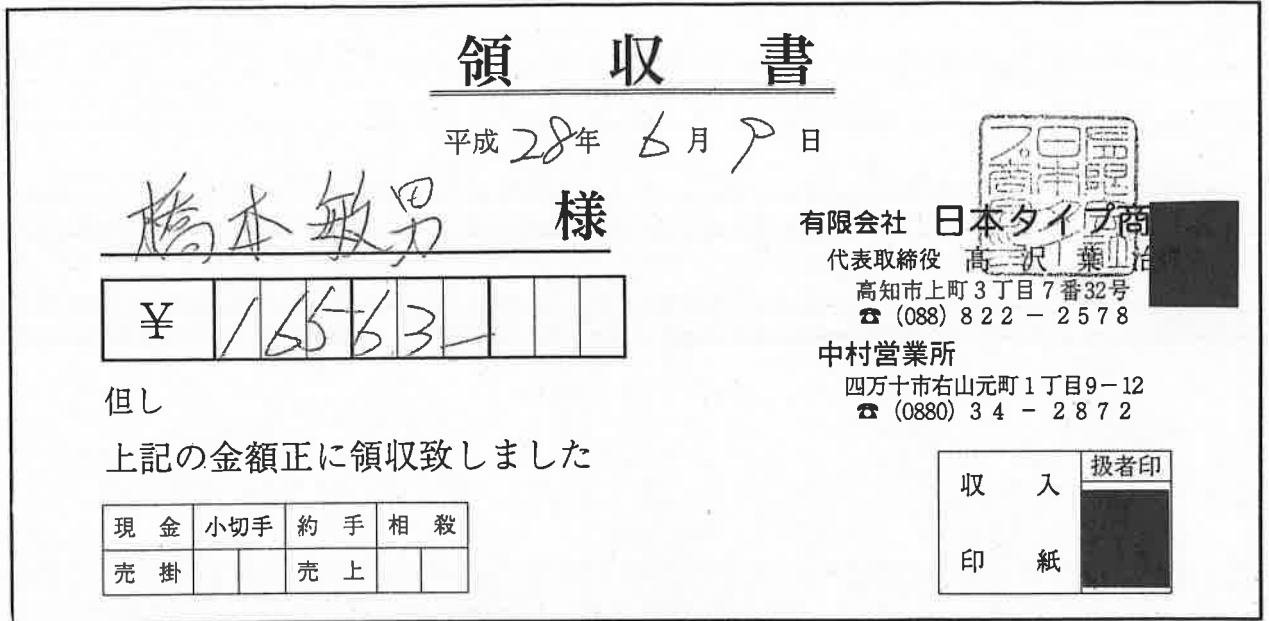 領収書
平成 28年 6月 9日
橋本敏男 様
¥ 16563-
但し
上記の金額正に領収致しました
現金 小切手 約手 相殺
売掛 売上
有限会社 日本タイプ商
代表取締役 髙沢葉治
高知市上町3丁目7番32号
☎ (088) 822-2578
中村営業所
四万十市右山元町1丁目9-12
☎ (0880) 34-2872
収入
印紙
扱者印